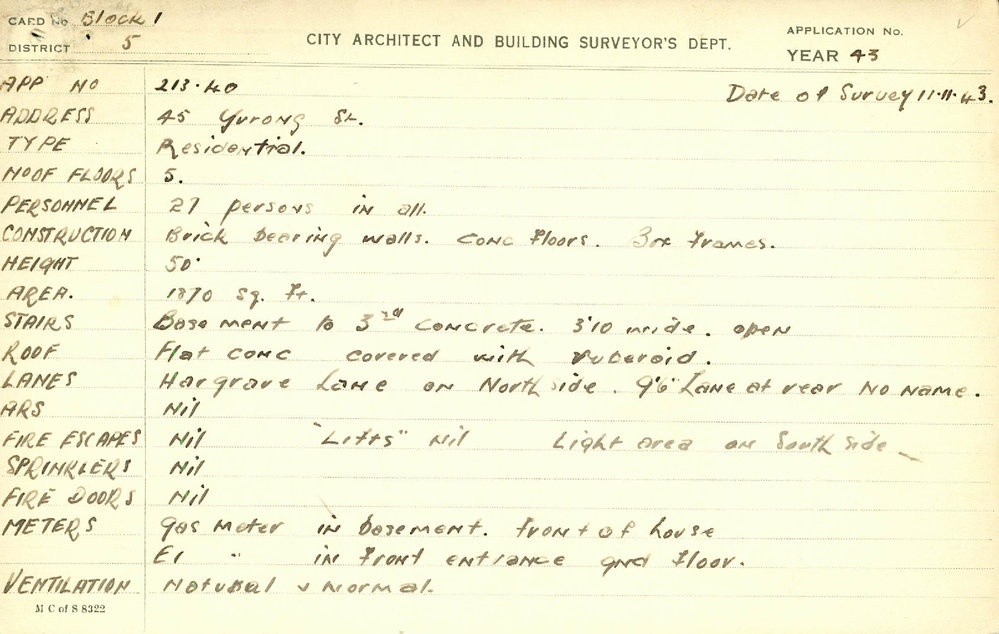 CARD No Block 1
DISTRICT 5
CITY ARCHITECT AND BUILDING SURVEYOR'S DEPT.
APPLICATION No.
YEAR 43
APP NO 213.40 Date of Survey 11.11.43.
ADDRESS 45 Yurong St.
TYPE Residential.
NO OF FLOORS 5.
PERSONNEL 27 persons in all.
CONSTRUCTION Brick bearing walls. conc floors. Box frames.
HEIGHT 50'
AREA. 1870 sq. ft.
STAIRS Basement to 3rd concrete. 3'10 wide. open
ROOF Flat conc covered with ruberoid.
LANES Hargrave Lane on North side. 9'6" Lane at rear no name.
ARS Nil
FIRE ESCAPES Nil "Lifts" Nil Light area on South side
SPRINKLERS Nil
FIRE DOORS Nil
METERS Gas meter in basement. front of house
El " in front entrance gnd floor.
VENTILATION Natural & normal.
M C of S 8322